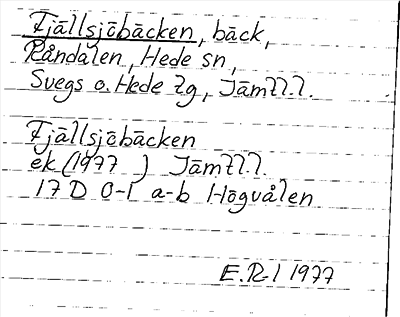 Fjällsjöbäcken, bäck,
Råndalen, Hede sn,
Svegs o. Hede tg, Jämtl.l.
Fjällsjöbäcken
ek (1977 ) Jämtl.l.
17 D 0-1 a-b Högvålen
E.R.l 1977